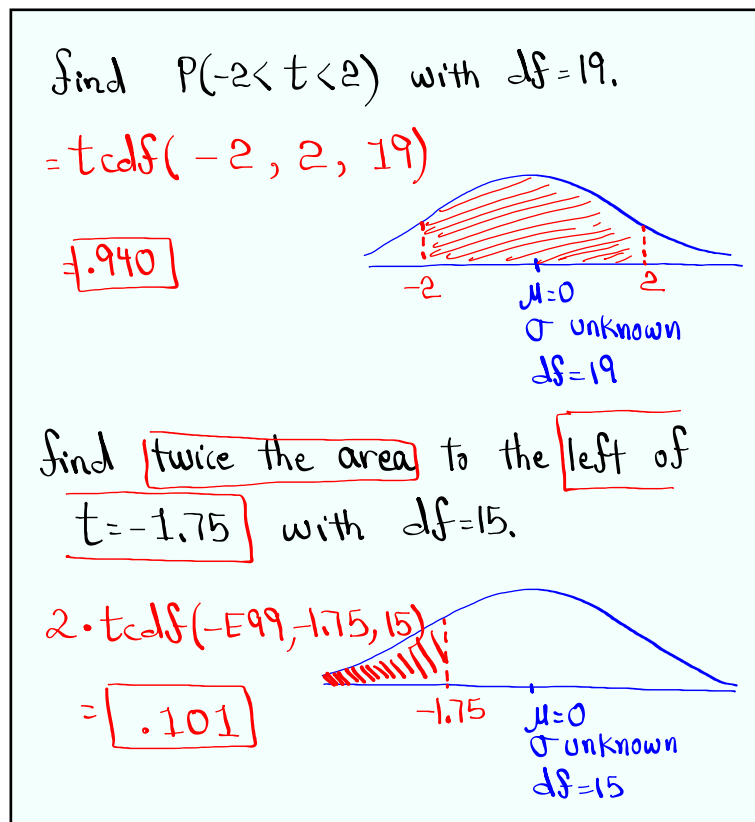 find P(-2< t <2) with df=19.
= tcdf( -2, 2, 19)
= .940
-2
2
μ=0
σ unknown
df=19
find twice the area to the left of
t=-1.75 with df=15.
2·tcdf(-E99,-1.75,15)
= .101
-1.75
μ=0
σ unknown
df=15